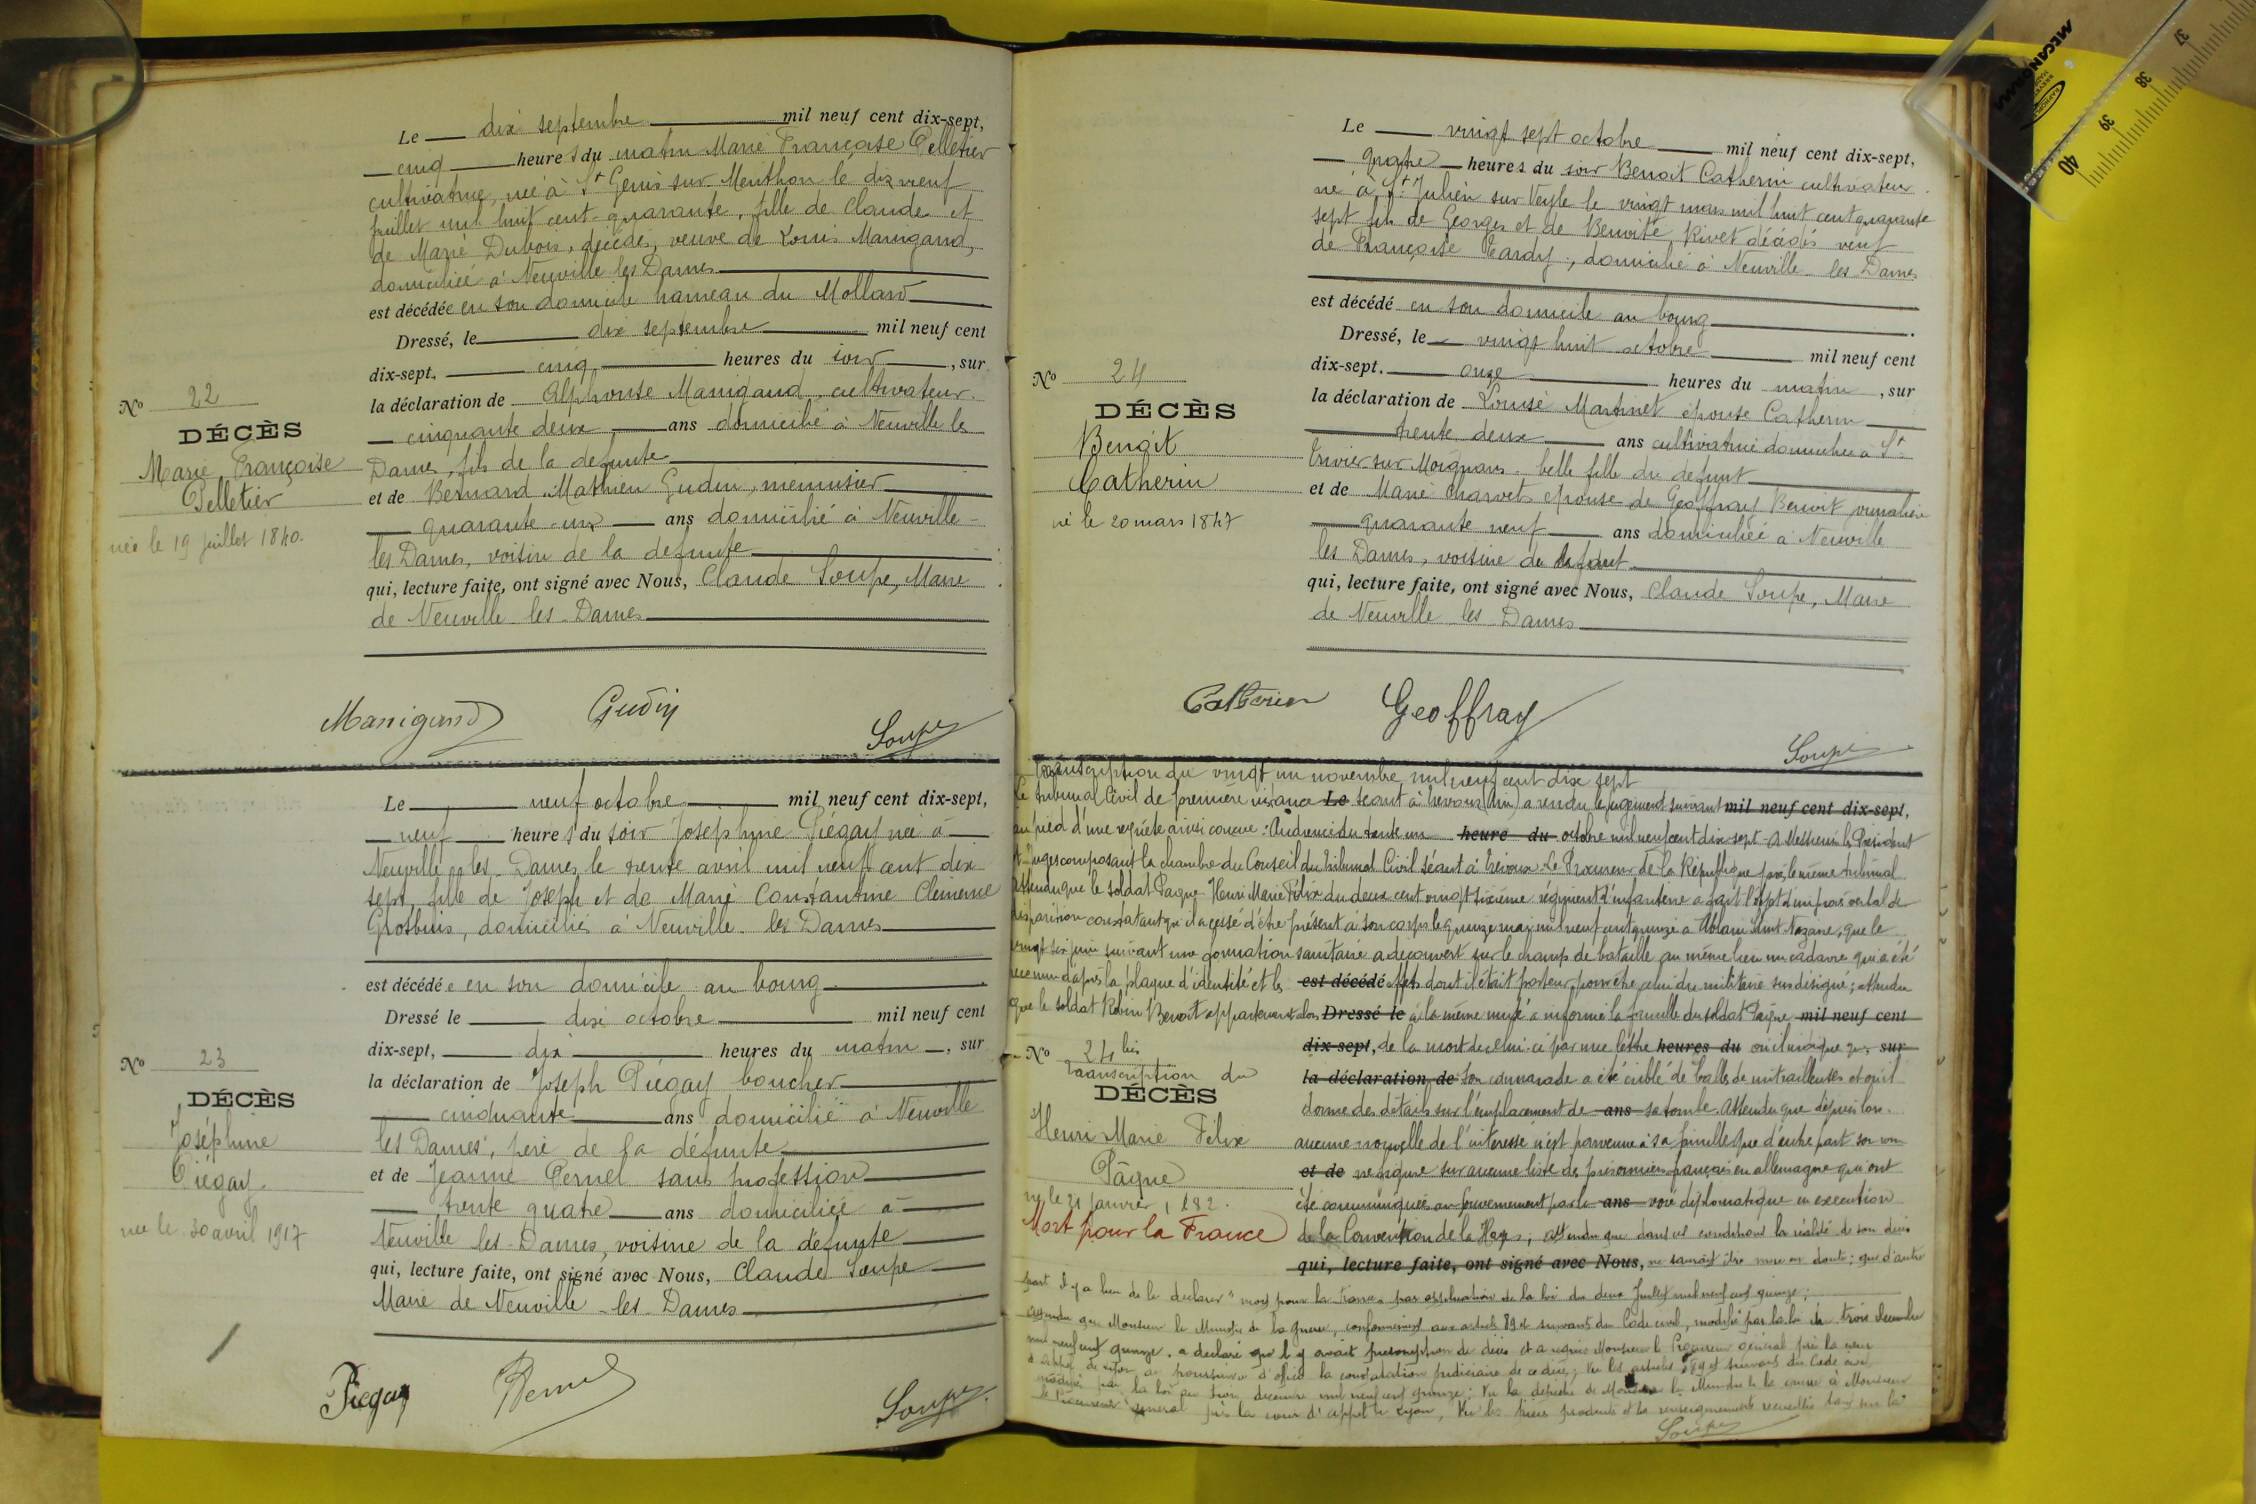 Le dix septembre mil neuf cent dix-sept,
cinq heures du matin Marie Françoise Pelletier
cultivatrice, née à St Genis sur Menthon le dix neuf
juillet mil huit cent quarante, fille de Claude et
de Marie Dubois, décédés, veuve de Louis Manigand,
domiciliée à Neuville les Dames
est décédée en son domicile hameau du Mollard
Dressé, le dix septembre mil neuf cent
dix-sept, cinq heures du soir, sur
la déclaration de Alphonse Manigand, cultivateur
cinquante deux ans domicilié à Neuville les
Dames, fils de la defunte
et de Bernard Mathieu Gudin, menuisier
quarante-un ans domicilié à Neuville-
les Dames, voisin de la defunte
qui, lecture faite, ont signé avec Nous, Claude Soupe, Maire
de Neuville les Dames
No 22
DÉCÈS
Marie Françoise
Pelletier
née le 19 juillet 1840.
Manigand Gudin Soupe
Le neuf octobre mil neuf cent dix-sept,
neuf heures du soir Joséphine Piégay née à
Neuville-les-Dames le trente avril mil neuf cent dix
sept, fille de Joseph et de Marie Constantine Clémence
Grosbuis, domiciliés à Neuville les Dames
est décédée en son domicile au bourg
Dressé le dix octobre mil neuf cent
dix-sept, dix heures du matin, sur
la déclaration de Joseph Piégay boucher
cinquante ans domicilié à Neuville
les Dames, père de la défunte
et de Jeanne Pernel sans profession
trente quatre ans domiciliée à
Neuville les Dames, voisine de la défunte
qui, lecture faite, ont signé avec Nous, Claude Soupe
Maire de Neuville-les-Dames
No 23
DÉCÈS
Joséphine
Piégay
née le 30 avril 1917
Piegay Pernel Soupe
Le vingt sept octobre mil neuf cent dix-sept,
quatre heures du soir Benoit Catherin cultivateur
né à St Julien sur Veyle le vingt mars mil huit cent quarante
sept fils de Georges et de Benoite Rivet décédés veuf
de Françoise Tardy, domicilié à Neuville les Dames
est décédé en son domicile au bourg
Dressé, le vingt huit octobre mil neuf cent
dix-sept. onze heures du matin, sur
la déclaration de Louise Martinet épouse Catherin
trente deux ans cultivatrice domiciliée à St
Trivier sur Moignans belle fille du defunt
et de Marie Charvet épouse de Geoffray Benoit
quarante neuf ans domiciliée à Neuville
les Dames, voisine du defunt
qui, lecture faite, ont signé avec Nous, Claude Soupe, Maire
de Neuville les Dames
No 24
DÉCÈS
Benoit
Catherin
né le 20 mars 1847
Catherin Geoffray Soupe
Transcription du vingt un novembre mil neuf cent dix sept
Le tribunal Civil de première instance Le séant à Trévoux (Ain) a rendu le jugement suivant mil neuf cent dix-sept,
au pied d'une requête ainsi conçue: Audience du trente un heure du octobre mil neuf cent dix-sept A Messieurs les Président
et Juges composant la chambre du Conseil du Tribunal Civil séant à Trévoux Le Procureur de la République près le même tribunal
Attendu que le soldat Pagne Henri Marie Félix du deux cent vingt sixième régiment d'infanterie a fait l'objet d'un procès verbal de
disparition constatant qu'il a cessé d'être présent à son corps le quinze mai mil neuf cent quinze à Ablain Saint Nazaire, que le
vingt six juin suivant une formation sanitaire a découvert sur le champ de bataille au même lieu un cadavre qui a été
reconnu d'après la plaque d'identité et les est décédé effets dont il était porteur pour être celui du militaire sus désigné; attendu
que le soldat Robin Benoit appartenant alors Dressé le à la même unité a informé la famille du soldat Pagne mil neuf cent
dix-sept, de la mort de celui-ci par une lettre heures du où il indique que sur
la déclaration de son camarade a été criblé de balles de mitrailleuses et qu'il
donne des détails sur l'emplacement de ans sa tombe. Attendu que depuis lors
aucune nouvelle de l'intéressé n'est parvenue à sa famille que d'autre part son nom
et de ne figure sur aucune liste des prisonniers français en allemagne qui ont
été communiquées au Gouvernement par la ans voie diplomatique en exécution
de la Convention de la Haye; attendu que dans ces conditions la réalité de son décès
qui, lecture faite, ont signé avec Nous, ne saurait être mise en doute; que d'autre
part il y a lieu de le déclarer "mort pour la France" par application de la loi du deux Juillet mil neuf cent quinze;
attendu que Monsieur le Ministre de la guerre, conformément aux articles 89 et suivants du Code civil, modifié par la loi du trois décembre
mil neuf cent quinze, a déclaré qu'il y avait présomption de décès et a requis Monsieur le Procureur général près la cour
d'appel de Lyon de poursuivre d'office la constatation judiciaire de ce décès; Vu les articles 89 et suivants du Code civil
modifiés par la loi du trois décembre mil neuf cent quinze; Vu la dépêche de Monsieur le Ministre de la guerre à Monsieur
le Procureur général près la cour d'appel de Lyon, Vu les pièces produites et les renseignements recueillis tant sur la
No 24 bis
Transcription du
DÉCÈS
Henri Marie Félix
Pagne
né le 21 janvier 1882.
Mort pour la France
Soupe
MECANORMA
37
38
39
40